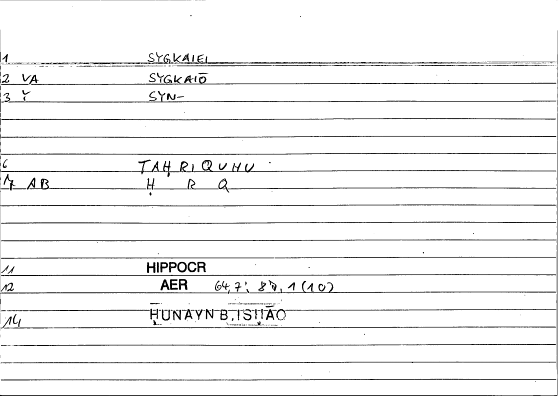 1 SYGKAIEI
2 VA SYGKAIŌ
3 Y̌ SYN-
6 TAḤRIQUHU
7 AB Ḥ R Q
11 HIPPOCR
12 AER 64,7; 1(10)
14 ḤUNAYN B. ISḤĀQ